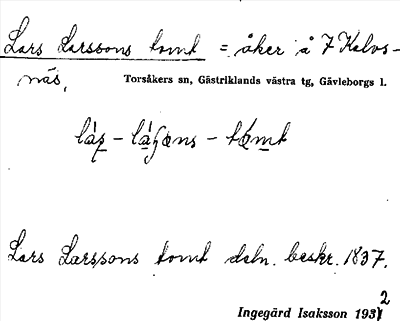 Lars Larssons tomt = åker å 7 Kalvs-
näs,
Torsåkers sn, Gästriklands västra tg, Gävleborgs l.
Lars Larssons tomt deln. beskr. 1837.
Ingegärd Isaksson 1932